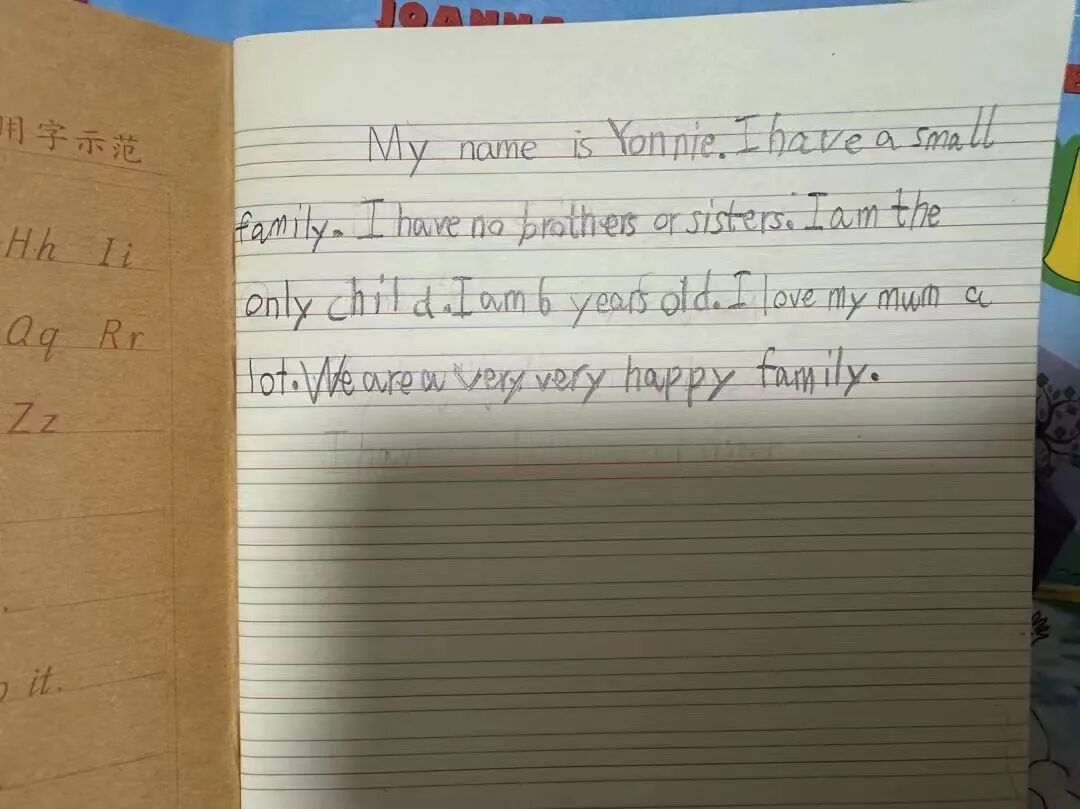 JOANNA
用字示范
Hh Ii
Qq Rr
Zz
it.
My name is Yonnie. I have a small
family. I have no brothers or sisters. I am the
only child. I am 6 years old. I love my mum a
lot. We are a very very happy family.
I have